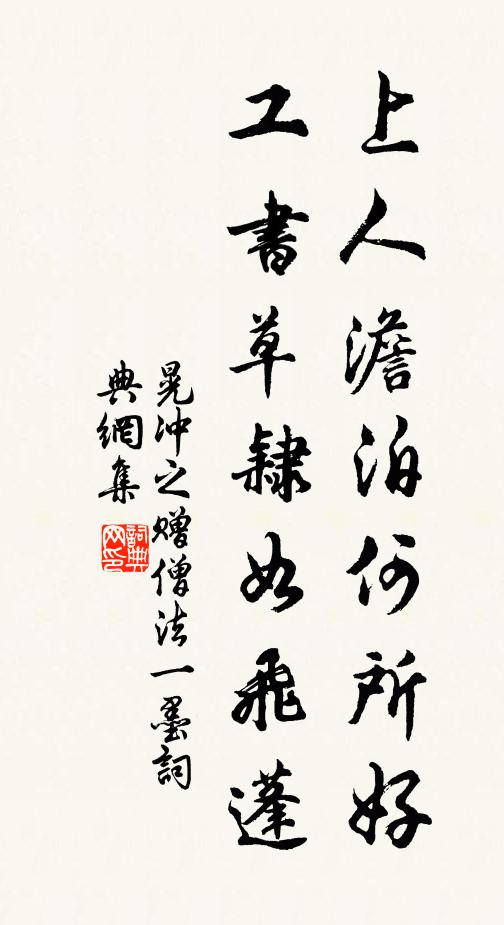 上人澹泊何所好
工書草隸如飛蓬
晃沖之贈僧法一墨詞
典網集
詞典網印